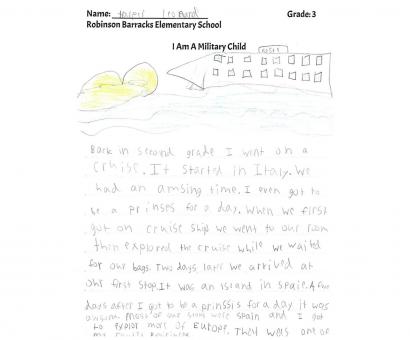 Name: Leonard Grade: 3
Robinson Barracks Elementary School
I Am A Military Child
Back in second grade I went on a
cruise. It started in Italy. We
had an amsing time. I even got to
be a prinses for a day. When we first
got on cruise ship we went to our room
then explored the cruise while we waited
for our bags. Two days later we arrived at
our first stop. It was an island in Spaie. A few
days after I got to be a prinssis for a day it was
most of our stops were spain and I got
to explor more of Europe. That was one of
my